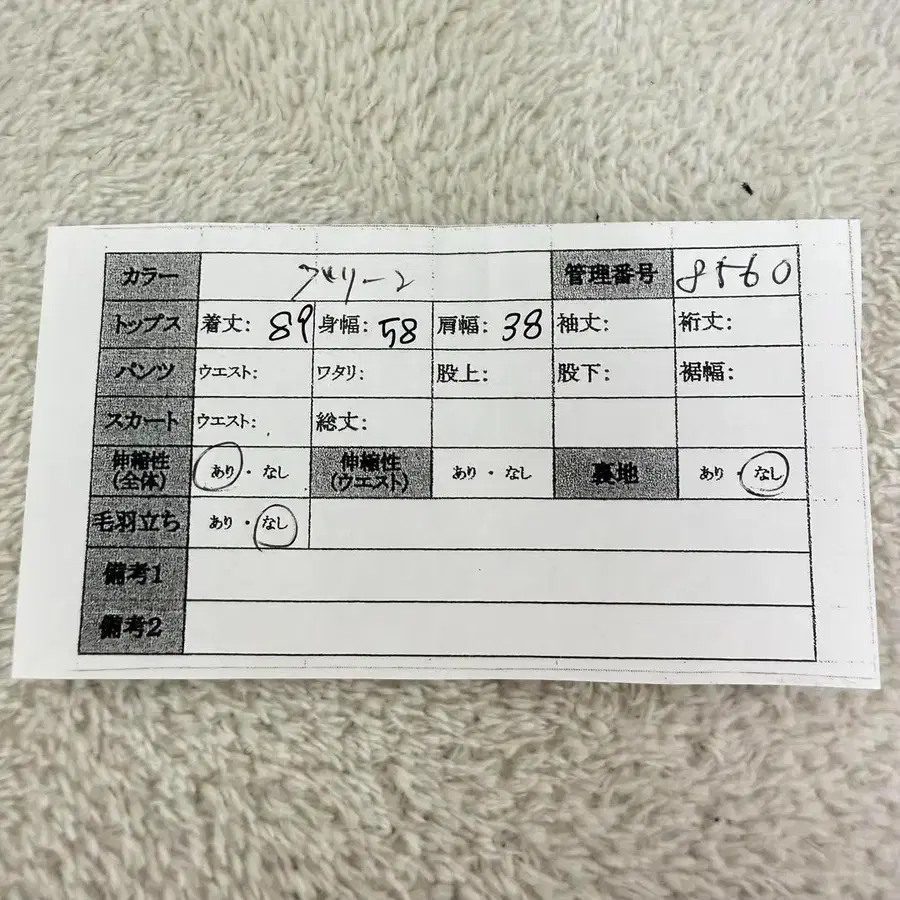 カラー グリーン 管理番号 8560
トップス 着丈: 89 身幅: 58 肩幅: 38 袖丈: 裄丈:
パンツ ウエスト: ワタリ: 股上: 股下: 裾幅:
スカート ウエスト: 総丈:
伸縮性(全体) あり・なし 伸縮性(ウエスト) あり・なし 裏地 あり・なし
毛羽立ち あり・なし
備考1
備考2